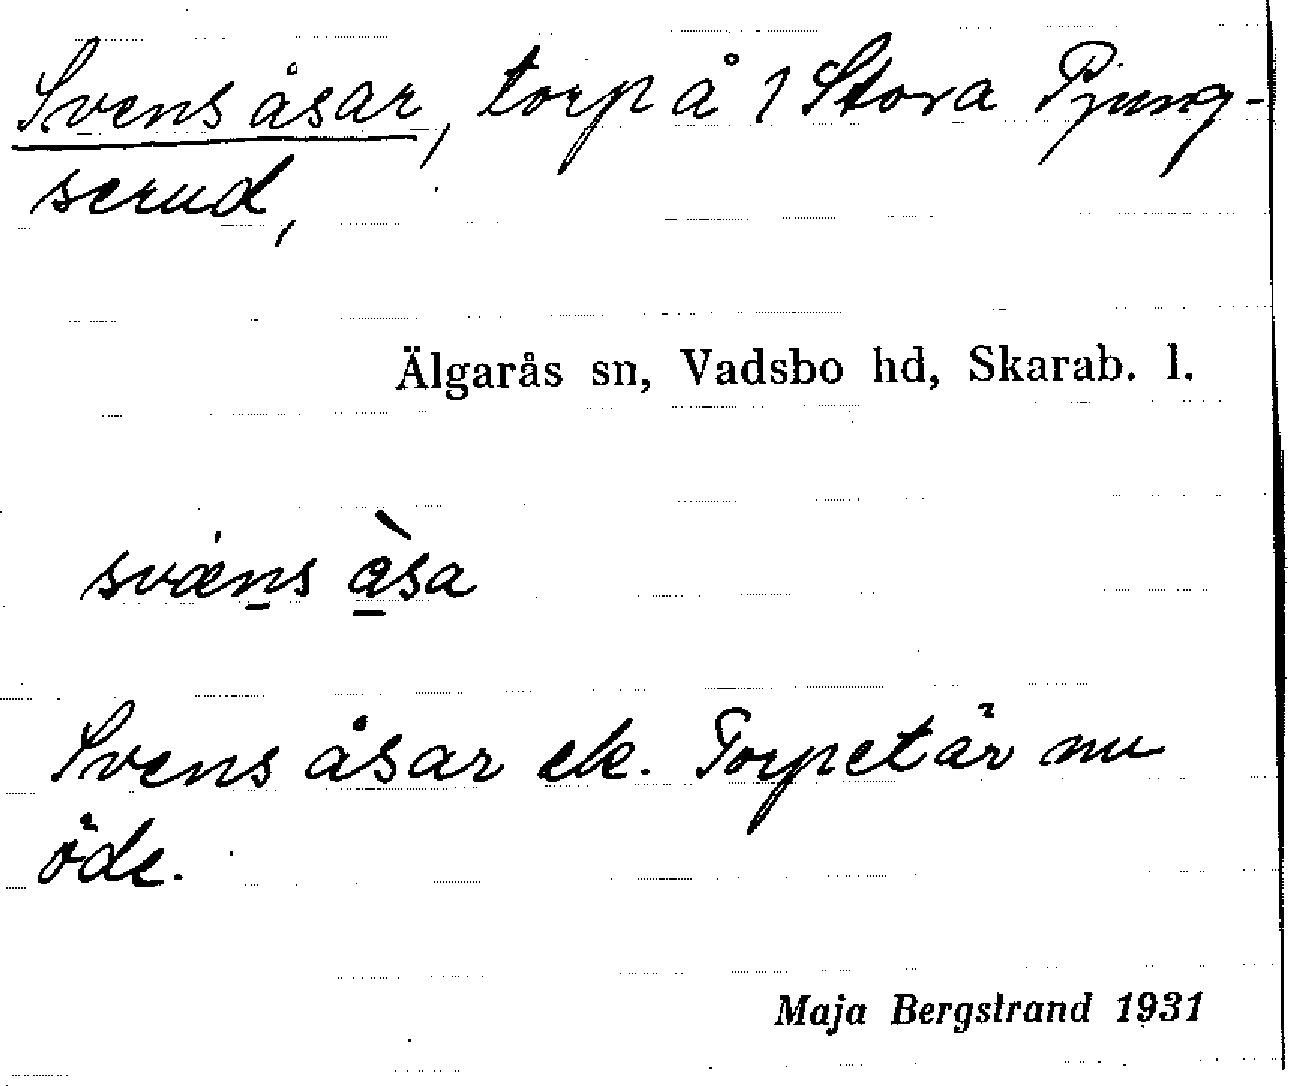 Svens åsar, torp å 1 Stora Pjung-
serud,
Älgarås sn, Vadsbo hd, Skarab. l.
svæns åsa
Svens åsar ek. Torpet är nu
öde.
Maja Bergstrand 1931